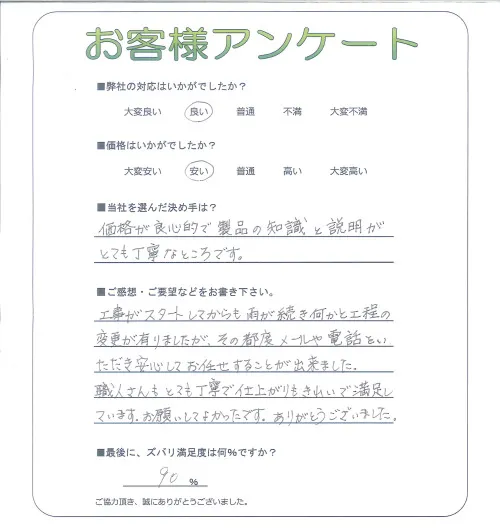 お客様アンケート
■弊社の対応はいかがでしたか？
大変良い 良い 普通 不満 大変不満
■価格はいかがでしたか？
大変安い 安い 普通 高い 大変高い
■当社を選んだ決め手は？
価格が良心的で製品の知識と説明が
とても丁寧なところです。
■ご感想・ご要望などをお書き下さい。
工事がスタートしてからも雨が続き何かと工程の
変更が有りましたが、その都度メールや電話をい
ただき安心してお任せすることが出来ました。
職人さんもとても丁寧で仕上がりもきれいで満足し
ています。お願いしてよかったです。ありがとうございました。
■最後に、ズバリ満足度は何％ですか？
90 %
ご協力頂き、誠にありがとうございました。